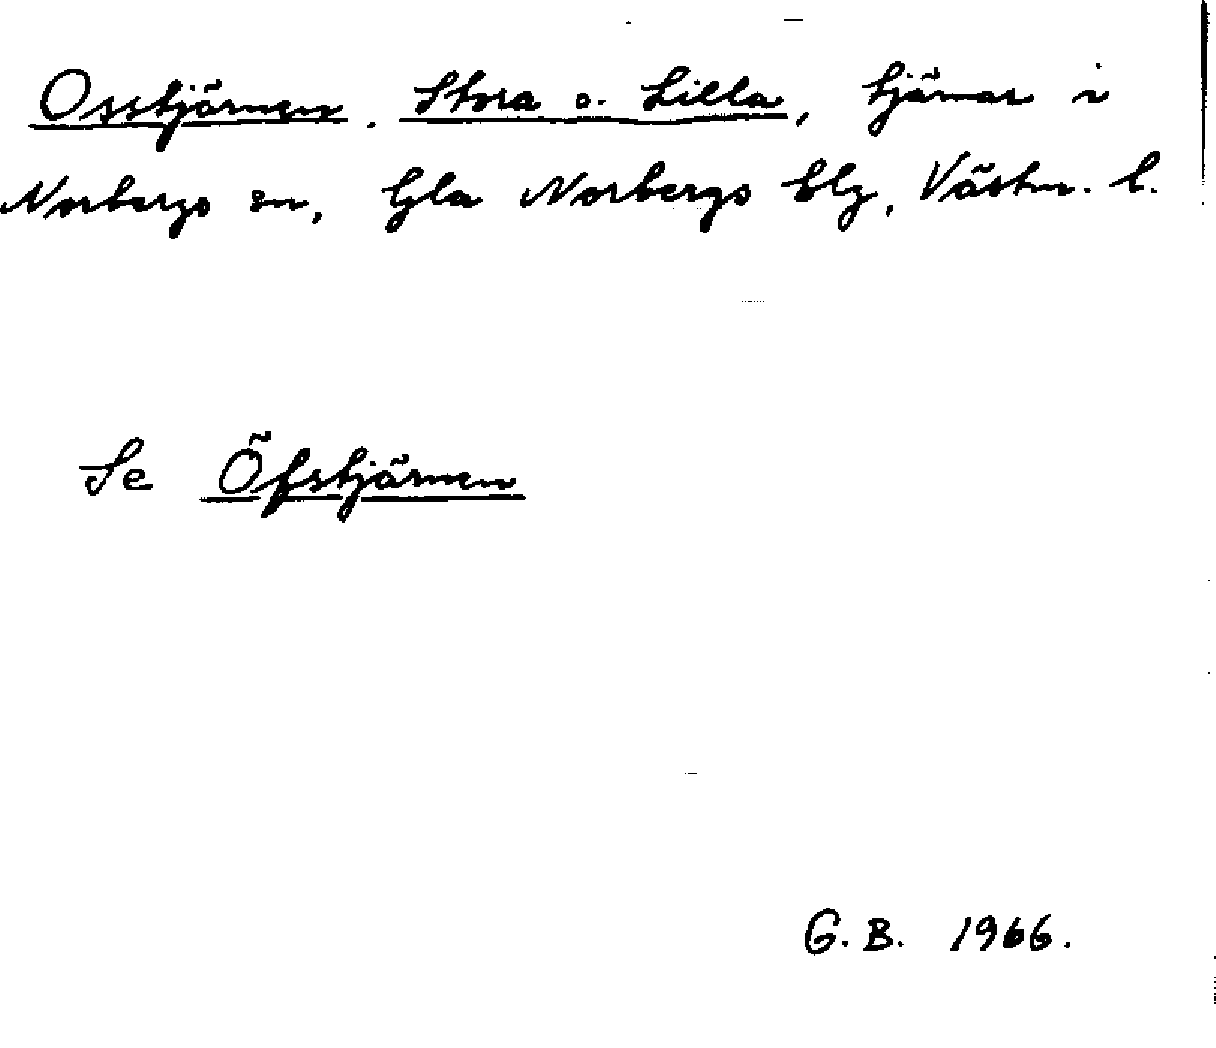 Osstjärnen, Stora o. Lilla, tjärnar i
Norbergs sn, Gla Norbergs blg, Västm. l.
Se Öfstjärnen
G. B. 1966.